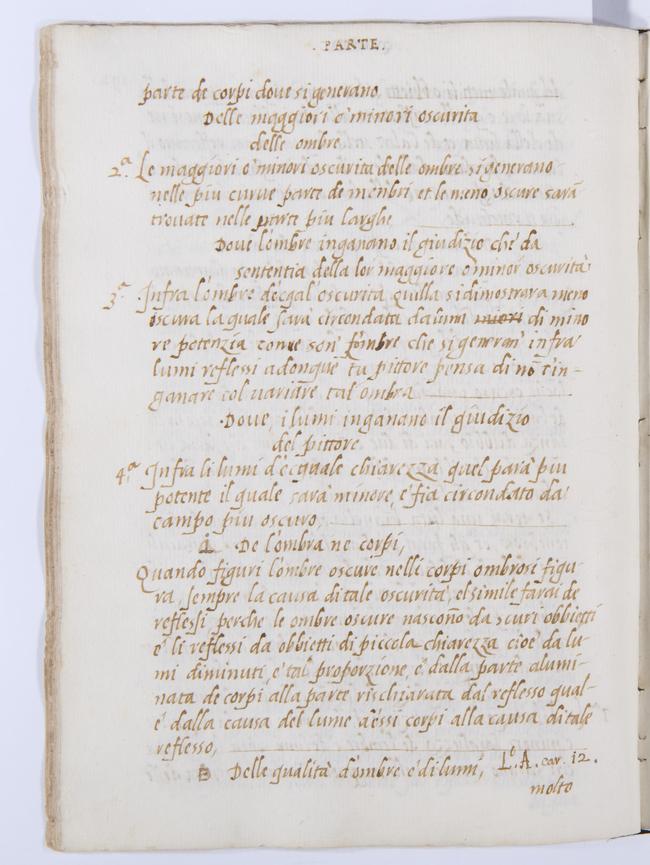 . PARTE .
parte de corpi dove si generano
Delle maggiori o minori oscurita
delle ombre
2ª. Le maggiori o minori oscurita delle ombre si generano
nelle piu curve parte de menbri et le meno oscure sarā
trovate nelle parte piu larghe
Dove l'ombre inganano il giudizio che da
sententia della lor maggiore o minor oscurità
3ª. Infra l'ombre d'ecgal' oscurità quella si dimostrara meno
oscura la quale sara circondata da lumi di mino
re potenzia come son' l'ombre che si generan' infra
lumi reflessi adonque tu pittore pensa di nō t'in-
ganare col variare tal ombra
Dove i lumi inganano il giudizio
del pittore
4ª. Infra li lumi d'ecquale chiarezza quel parà piu
potente il quale sarà minore, e fia circondato da
campo piu oscuro,
De l'ombra ne corpi,
Quando figuri l'ombre oscure nelli corpi ombrosi figu-
ra, sempre la causa di tale oscurita, el simile farai de
reflessi perche le ombre oscure nascono da scuri obbietti
e li reflessi da obbietti di piccola chiarezza cioe da lu-
mi diminuti, e tal proporzione, e dalla parte alumi-
nata de corpi alla parte rischiarata dal reflesso qual-
e dalla causa del lume d'essi corpi alla causa di tale
reflesso,
B Delle qualità d'ombre e di lumi, Lº. A. car. 12.
molto